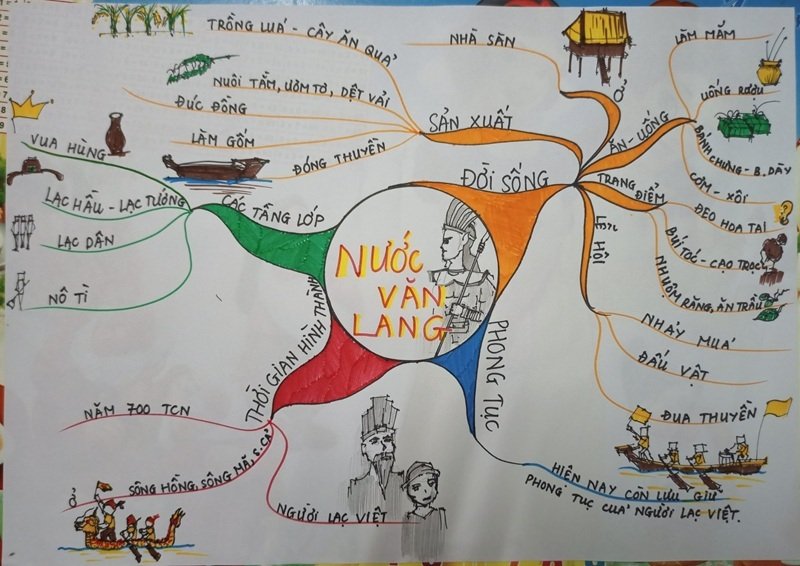 NƯỚC
VĂN
LANG
ĐỜI SỐNG
SẢN XUẤT
TRỒNG LUÁ - CÂY ĂN QUẢ
NUÔI TẰM, ƯƠM TƠ, DỆT VẢI
ĐÚC ĐỒNG
LÀM GỐM
ĐÓNG THUYỀN
Ở
NHÀ SÀN
ĂN - UỐNG
LÀM MẮM
UỐNG RƯỢU
BÁNH CHƯNG - B.DÀY
CƠM - XÔI
TRANG
ĐIỂM
ĐEO HOA TAI
BÚI TÓC - CẠO TRỌC
NHUỘM RĂNG, ĂN TRẦU
HỘI
NHẢY MUÁ
ĐẤU VẬT
ĐUA THUYỀN
PHONG TỤC
HIỆN NAY CÒN LƯU GIỮ
PHONG TỤC CUẢ NGƯỜI LẠC VIỆT.
THỜI GIAN HÌNH THÀNH
NĂM 700 TCN
Ở SÔNG HỒNG, SÔNG MÃ, S.CẢ
NGƯỜI LẠC VIỆT
CÁC TẦNG LỚP
VUA HÙNG
LẠC HẦU - LẠC TƯỚNG
LẠC DÂN
NÔ TÌ